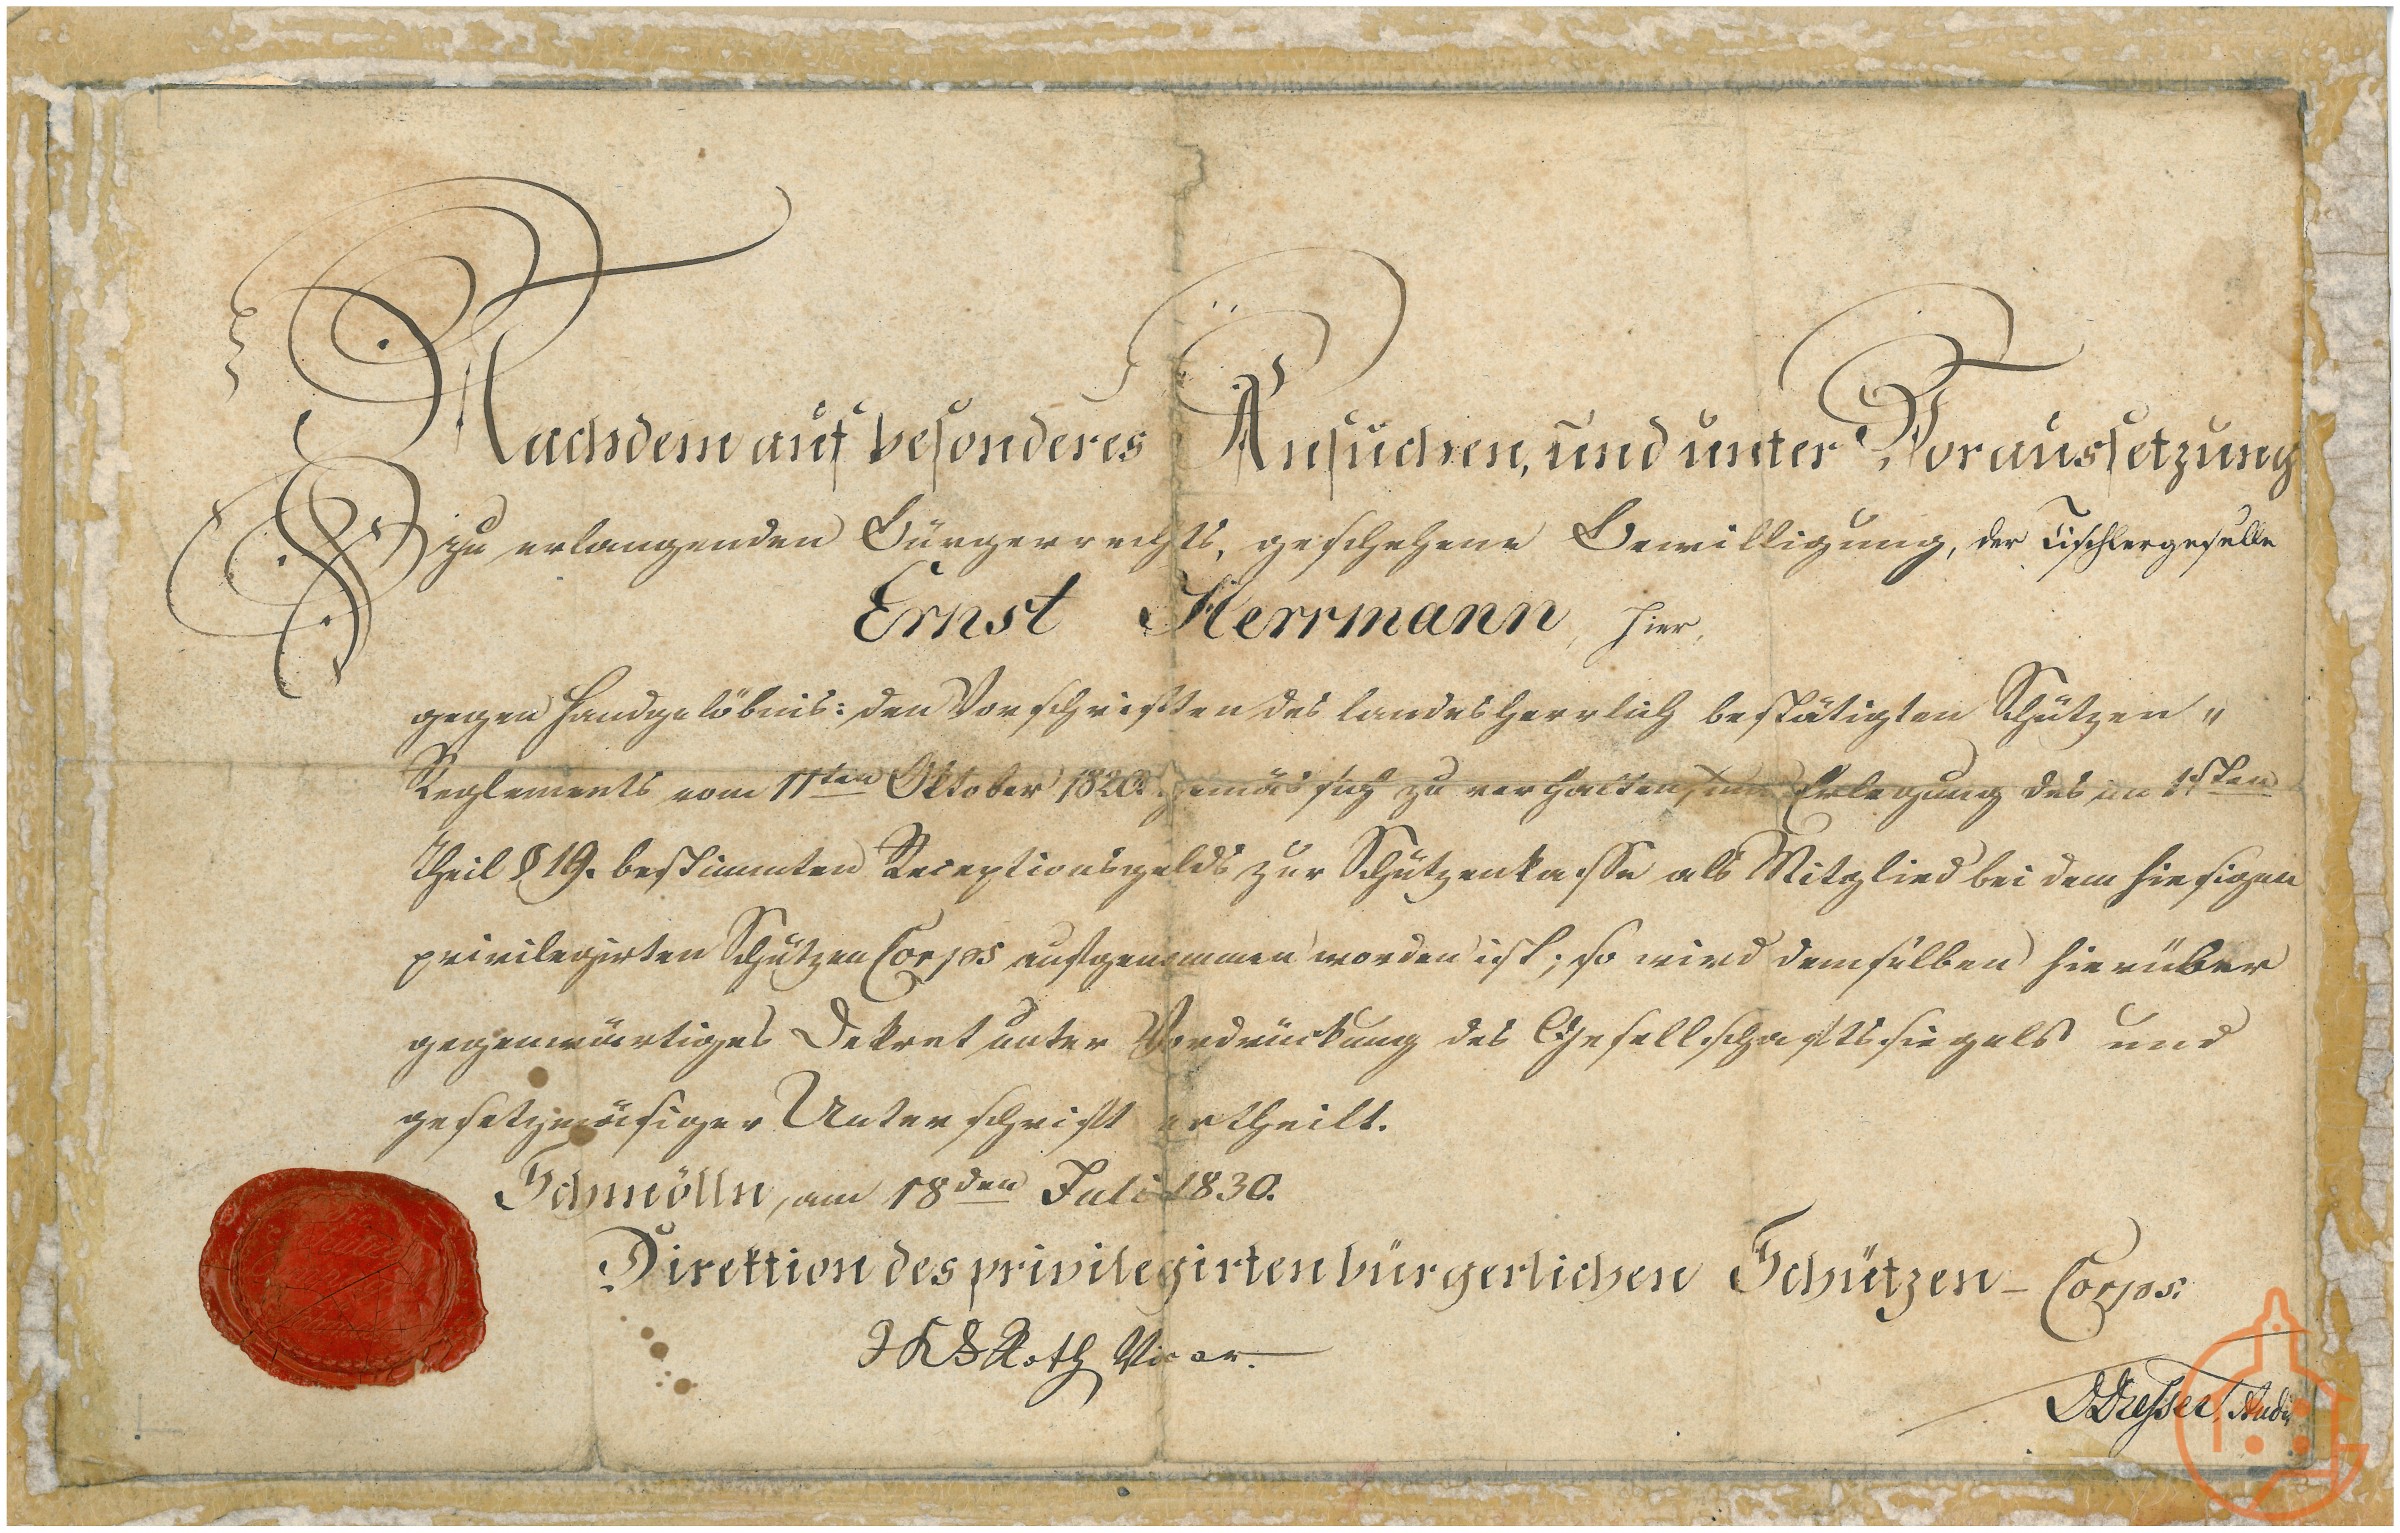 Nachdem auf besonderes Ansuchen, und unter Voraussetzung
zu erlangenden Bürgerrechts, geschehene Bewilligung, der Tischlergeselle
Ernst Herrmann, hier,
gegen Handgelöbnis: den Vorschriften des landesherrlich bestätigten Schützen„
Reglements vom 11ten Oktober 1820. gemäs sich zu verhalten, Erlegung des im 1sten
Theil § 19. bestimmten Receptionsgelds zur Schützenkasse als Mitglied bei dem hiesigen
privilegirten Schützen Corps aufgenommen worden ist; so wird demselben hierüber
gegenwärtiges Dekret unter Vordrückung des Gesellschaftssiegels und
gesetzmäsiger Unterschrift ertheilt.
Schmölln, am 18den Juli 1830.
Direktion des privilegirten bürgerlichen Schützen-Corps.
Roth